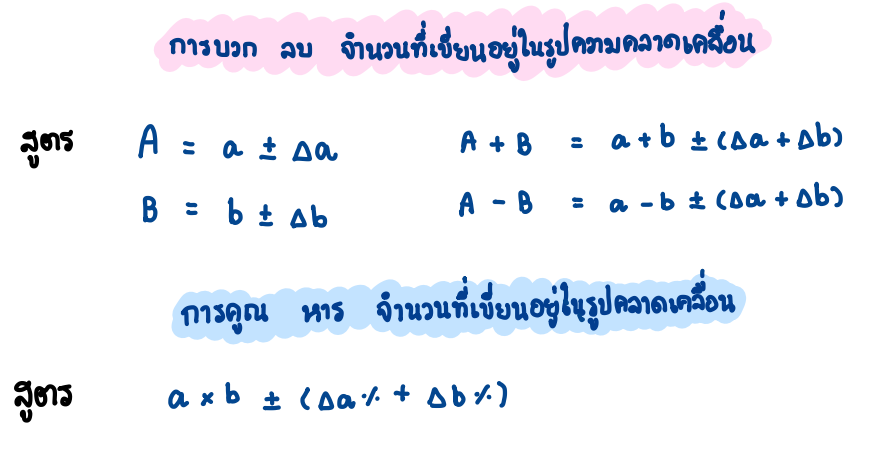 การบวก ลบ จำนวนที่เขียนอยู่ในรูปความคลาดเคลื่อน
สูตร A = a ± Δa A + B = a + b ± (Δa + Δb)
B = b ± Δb A - B = a - b ± (Δa + Δb)
การคูณ หาร จำนวนที่เขียนอยู่ในรูปคลาดเคลื่อน
สูตร a × b ± (Δa% + Δb%)